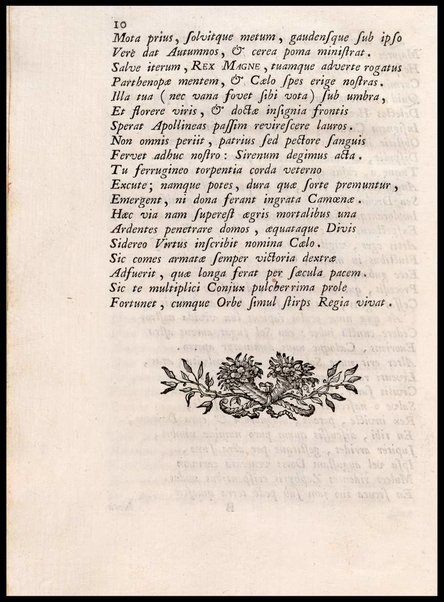 10
Mota prius, ſolvitque metum, gaudenſque ſub ipſo
Verè dat Autumnos, & cerea poma miniſtrat.
Salve iterum, REX MAGNE, tuamque adverte rogatus
Parthenopæ mentem, & Cœlo ſpes erige noſtras.
Illa tua (nec vana fovet ſibi vota) ſub umbra,
Et florere viris, & doctæ inſignia frontis
Sperat Apollineas paſſim revireſcere lauros.
Non omnis periit, patrius ſed pectore ſanguis
Fervet adhuc noſtro: Sirenum degimus acta.
Tu ferrugineo torpentia corda veterno
Excute; namque potes, dura quæ ſorte premuntur,
Emergent, ni dona ferant ingrata Camœnæ.
Hæc via nam ſupereſt ægris mortalibus una
Ardentes penetrare domos, æquataque Divis
Sidereo Virtus inſcribit nomina Cælo.
Sic comes armatæ ſemper victoria dextræ
Adfuerit, quæ longa ferat per ſæcula pacem.
Sic te multiplici Conjux pulcherrima prole
Fortunet, cumque Orbe ſimul ſtirps Regia vivat.